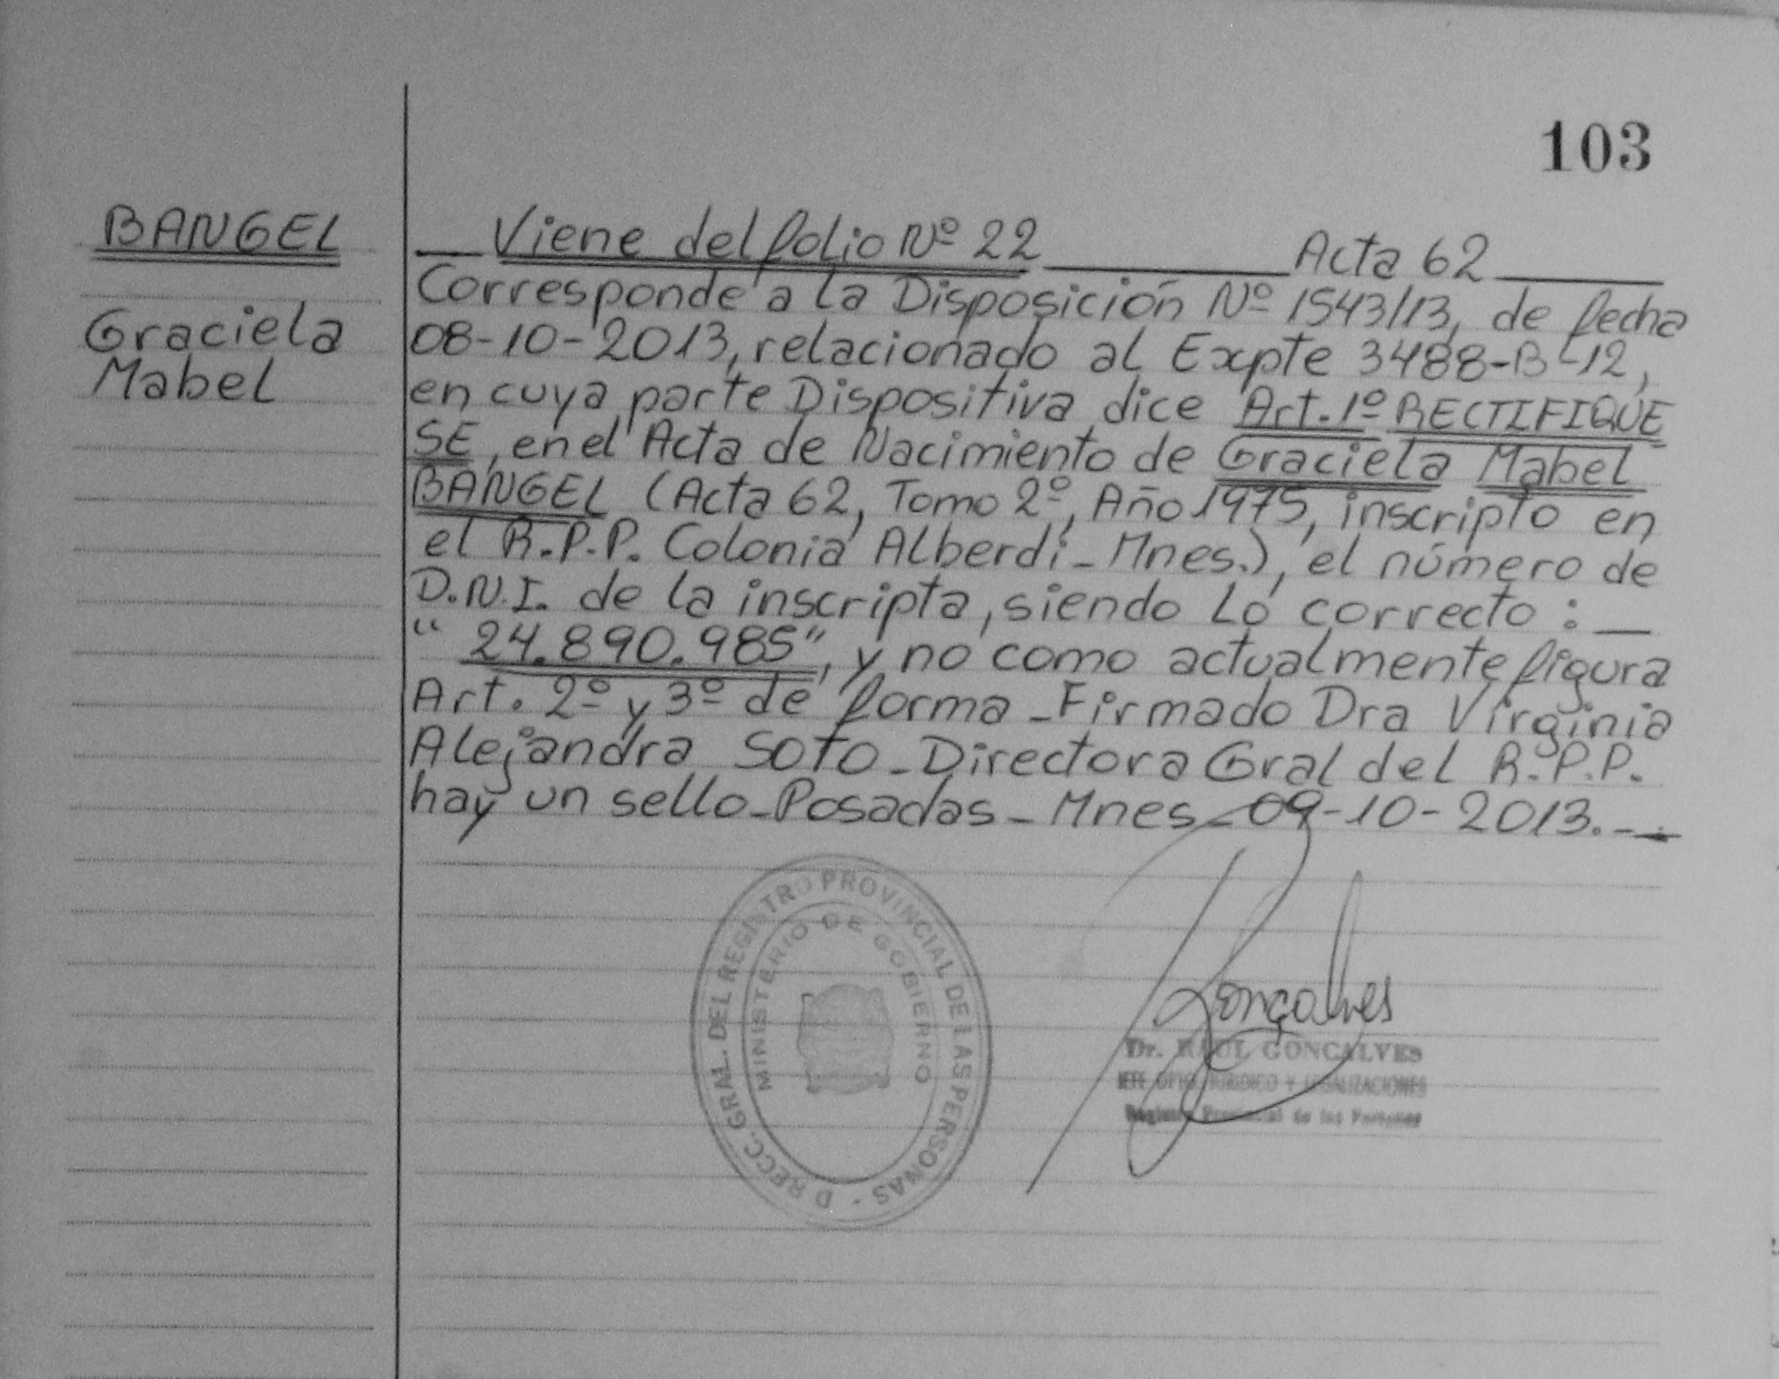 103
BANGEL
Graciela
Mabel
Viene del folio Nº 22 Acta 62
Corresponde a la Disposición Nº 1543/13, de fecha
08-10-2013, relacionado al Expte 3488-B-12,
en cuya parte Dispositiva dice Art. 1º RECTIFIQUE
SE, en el Acta de Nacimiento de Graciela Mabel
BANGEL (Acta 62, Tomo 2º, Año 1975, inscripto en
el R.P.P. Colonia Alberdi - Mnes.), el número de
D.N.I. de la inscripta, siendo lo correcto :
“ 24.890.985”, y no como actualmente figura
Art. 2º y 3º de forma - Firmado Dra Virginia
Alejandra SOTO - Directora Gral del R.P.P.
hay un sello - Posadas - Mnes - 09-10-2013.-
DIRECC. GRAL. DEL REGISTRO PROVINCIAL DE LAS PERSONAS -
MINISTERIO DE GOBIERNO
Gonçalves
Dr. RAUL GONCALVES
JEFE DPTO. JURIDICO Y LEGALIZACIONES
Registro Provincial de las Personas